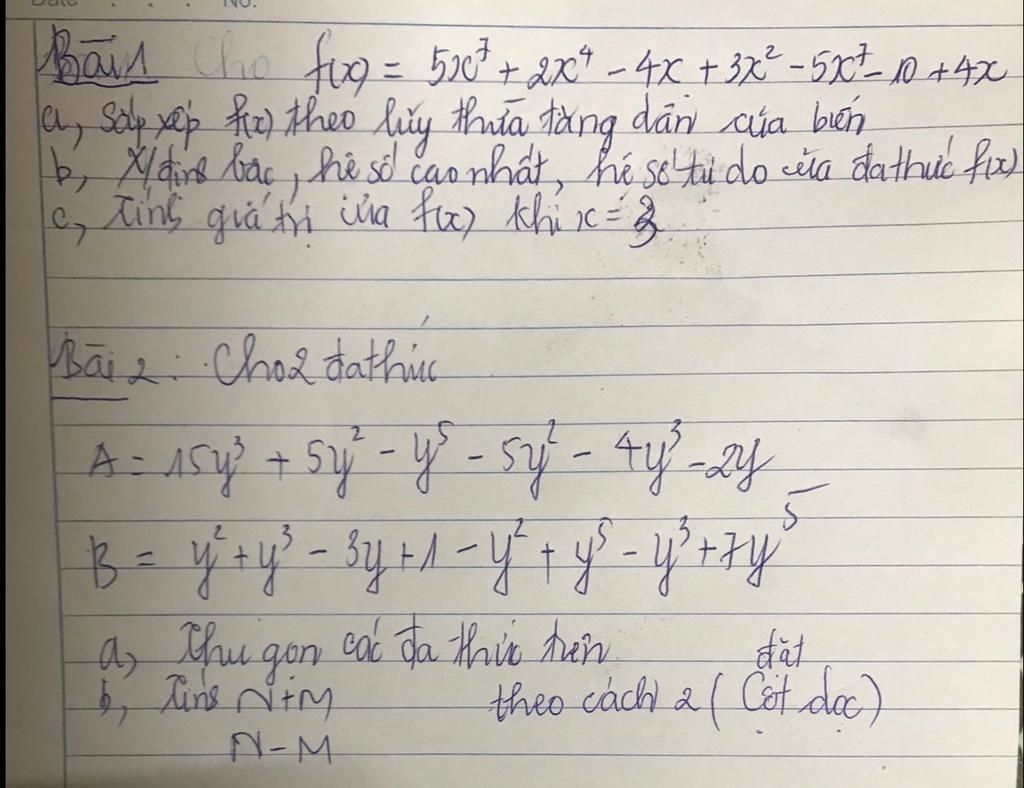 Date . . . No.
Bài 1 Cho f(x) = 5x⁷ + 2x⁴ - 4x + 3x² - 5x⁷ - 10 + 4x
a, Sắp xếp f(x) theo lũy thừa tăng dần của biến
b, X/định bậc, hệ số cao nhất, hệ số tự do của đa thức f(x)
c, Tính giá trị của f(x) khi x =
Bài 2 : Cho 2 đa thức
A = 15y³ + 5y² - y⁵ - 5y² - 4y³ - 2y
B = y² + y³ - 3y + 1 - y² + y⁵ - y³ + 7y⁵
a, Thu gọn các đa thức trên
b, Tính N + M theo cách 2 ( đặt Cột dọc )
N - M